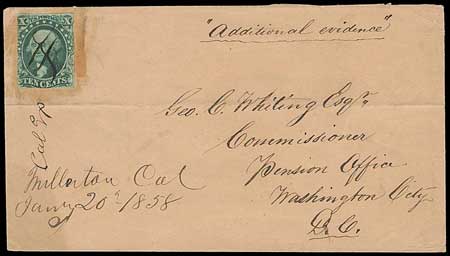 "Additional evidence"
X X
TEN CENTS
Geo. C. Whiting Esqr.
Commissioner
Pension Office
Washington City
D. C.
Millerton Cal
Jany 20th 1858